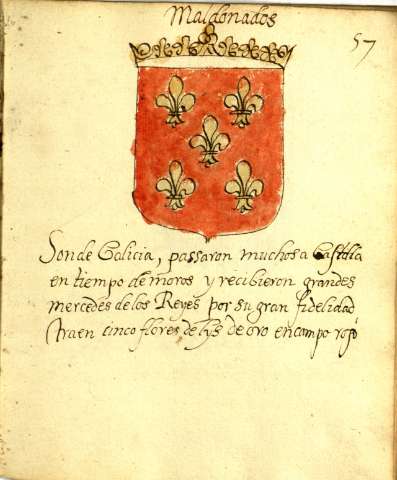 Maldonados
57
Son de Galicia, passaron muchos a Castilla
en tiempo de moros y recibieron grandes
mercedes de los Reyes por su gran fidelidad
traen cinco flores de lys de oro en campo rojo